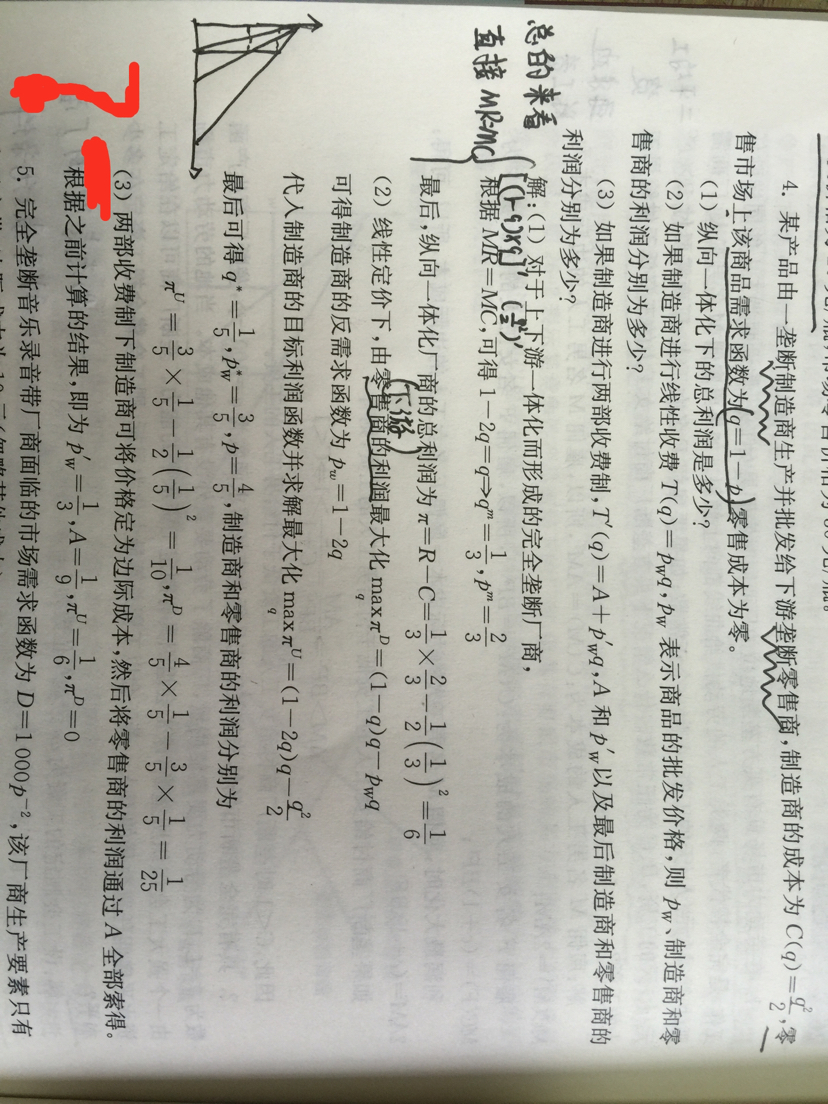 4. 某产品由一垄断制造商生产并批发给下游垄断零售商,制造商的成本为 C(q)=q²/2,零
售市场上该商品需求函数为 q=1-p,零售成本为零。
(1) 纵向一体化下的总利润是多少?
(2) 如果制造商进行线性收费 T(q)=p_w q, p_w 表示商品的批发价格,则 p_w、制造商和零
售商的利润分别为多少?
(3) 如果制造商进行两部收费制,T′(q)=A+p′_w q, A 和 p′_w 以及最后制造商和零售商的
利润分别为多少?
总的来看
直接 MR=MC
[(1-q)×q]′ (q²/2)′
解:(1) 对于上下游一体化而形成的完全垄断厂商,
根据 MR=MC,可得 1-2q=q⇒q^m=1/3, p^m=2/3
最后,纵向一体化厂商的总利润为 π=R-C=1/3×2/3-1/2(1/3)²=1/6
(下游)
(2) 线性定价下,由零售商的利润最大化 max_q π^D=(1-q)q-p_w q
可得制造商的反需求函数为 p_w=1-2q
代入制造商的目标利润函数并求解最大化 max_q π^U=(1-2q)q-q²/2
最后可得 q*=1/5, p_w*=3/5, p=4/5,制造商和零售商的利润分别为
π^U=3/5×1/5-1/2(1/5)²=1/10, π^D=4/5×1/5-3/5×1/5=1/25
(3) 两部收费制下制造商可将价格定为边际成本,然后将零售商的利润通过 A 全部索得。
根据之前计算的结果,即为 p′_w=1/3, A=1/9, π^U=1/6, π^D=0
5. 完全垄断音乐录音带厂商面临的市场需求函数为 D=1000p⁻²,该厂商生产要素只有